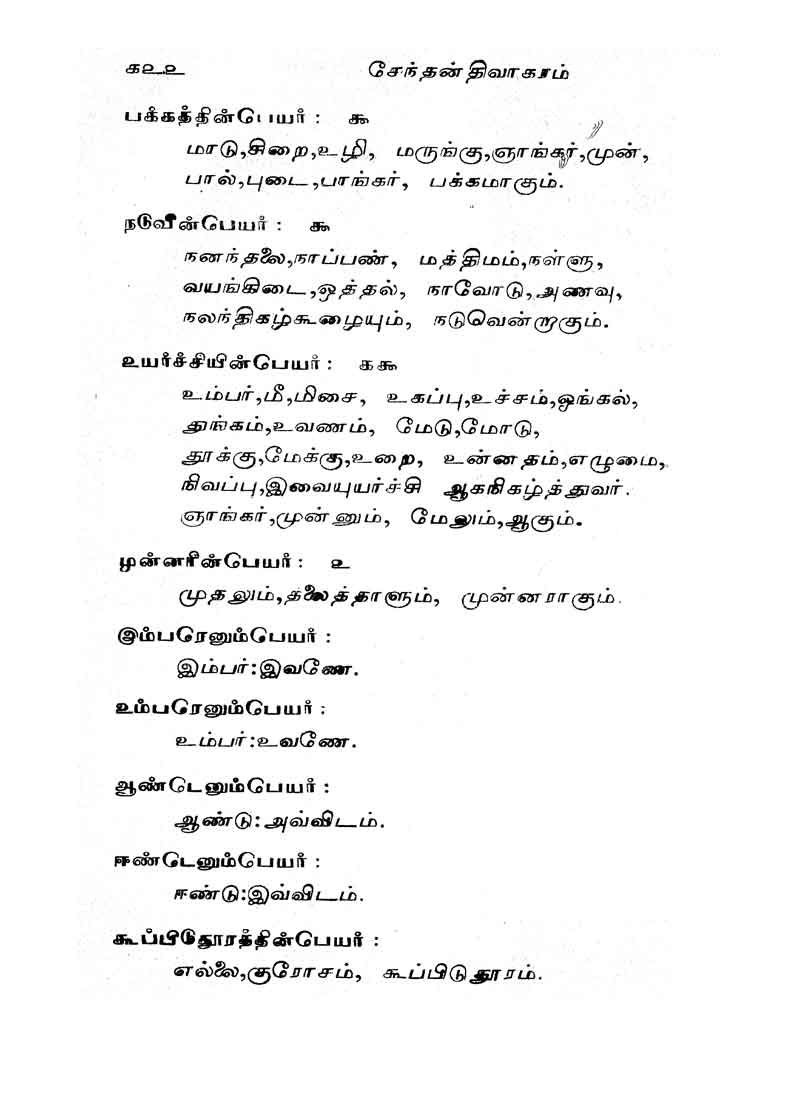 க௨௨ சேந்தன் திவாகரம்
பக்கத்தின்பெயர் : ௯
மாடு,சிறை,உழி, மருங்கு,ஞாங்கர்,முன்,
பால்,புடை,பாங்கர், பக்கமாகும்.
நடுவின்பெயர் : ௯
நனந்தலை,நாப்பண், மத்திமம்,நள்ளு,
வயங்கிடை,ஒத்தல், நாவோடு,அணவு,
நலந்திகழ்கூழையும், நடுவென்றாகும்.
உயர்ச்சியின்பெயர் : க௯
உம்பர்,மீ,மிசை, உகப்பு,உச்சம்,ஓங்கல்,
துங்கம்,உவணம், மேடு,மோடு,
தூக்கு,மேக்கு,உறை, உன்னதம்,எழுமை,
நிவப்பு,இவையுயர்ச்சி ஆகநிகழ்த்துவர்.
ஞாங்கர்,முன்னும், மேலும்,ஆகும்.
முன்னரின்பெயர் : ௨
முதலும்,தலைத்தாளும், முன்னராகும்.
இம்பரெனும்பெயர் :
இம்பர்:இவணே.
உம்பரெனும்பெயர் :
உம்பர்:உவணே.
ஆண்டெனும்பெயர் :
ஆண்டு:அவ்விடம்.
ஈண்டெனும்பெயர் :
ஈண்டு:இவ்விடம்.
கூப்பீடுதூரத்தின்பெயர் :
எல்லை,குரோசம், கூப்பிடுதூரம்.